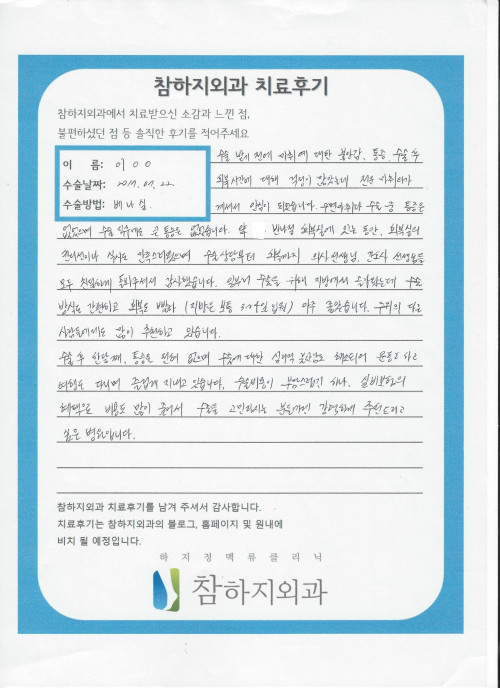 참하지외과 치료후기
참하지외과에서 치료받으신 소감과 느낀 점,
불편하셨던 점 등 솔직한 후기를 적어주세요
이 름: 이 O O
수술날짜: 2019. 07. 22.
수술방법: 베나실
수술 받기 전에 마취에 대한 불안감, 통증, 수술 후
회복시간에 대해 걱정이 많았는데 전문 마취의가
계셔서 안심이 되었습니다. 수면마취라 수술 중 통증은
없었으며 수술 직후에도 큰 통증은 없었습니다. 약 반나절 회복실에 있는 동안, 회복실의
컨디션이나 실내도 만족스러웠으며 수술상담부터 회복까지 의사선생님, 간호사 선생님들
모두 친절하게 해주셔서 감사했습니다. 일부러 수술을 위해 지방에서 올라왔는데 수술
방식도 간편하고 회복도 빨라 (지방은 보통 3~4일 입원) 아주 좋았습니다. 주위의 다른
사람들에게도 많이 추천하고 있습니다.
수술 후 한달째, 통증은 전혀 없으며 수술에 대한 심리적 부담감도 해소되어 운동도 하고
여행도 다니며 즐겁게 지내고 있습니다. 수술비용이 부담스럽긴 하나, 실비보험의
혜택으로 비용도 많이 줄어서 수술을 고민하시는 분들께 강력하게 추천드리고
싶은 병원입니다.
참하지외과 치료후기를 남겨 주셔서 감사합니다.
치료후기는 참하지외과의 블로그, 홈페이지 및 원내에
비치 될 예정입니다.
하 지 정 맥 류 클 리 닉
참하지외과